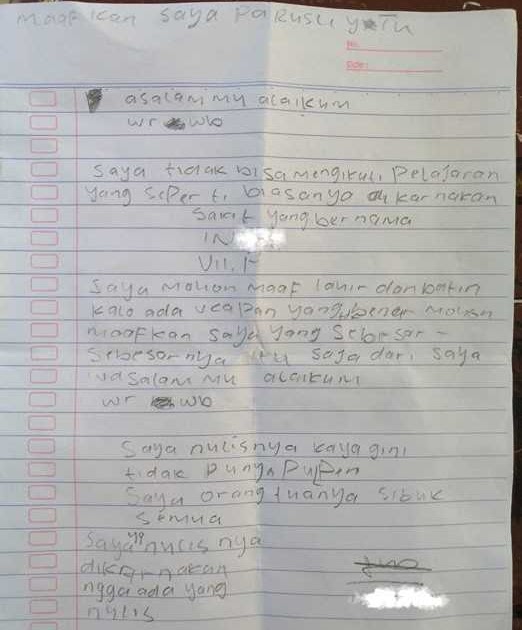 maafkan saya Pa Rusli y Tu
No.
Date:
asalam mu alaikum
wr wb
saya tidak bisa mengikuti Pelajaran
yang seperti biasanya di karnakan
sakit yang bernama
IN
VII.1
saya mohon maaf lahir dan batin
kalo ada ucapan yang bener mohon
maafkan saya yang sebesar -
sebesarnya itu saja dari saya
wasalam mu alaikum
wr wb
saya nulisnya kaya gini
tidak punya Pulpen
saya orang tuanya sibuk
semua
saya yg nulis nya
dikarnakan
ngga ada yang
nylis